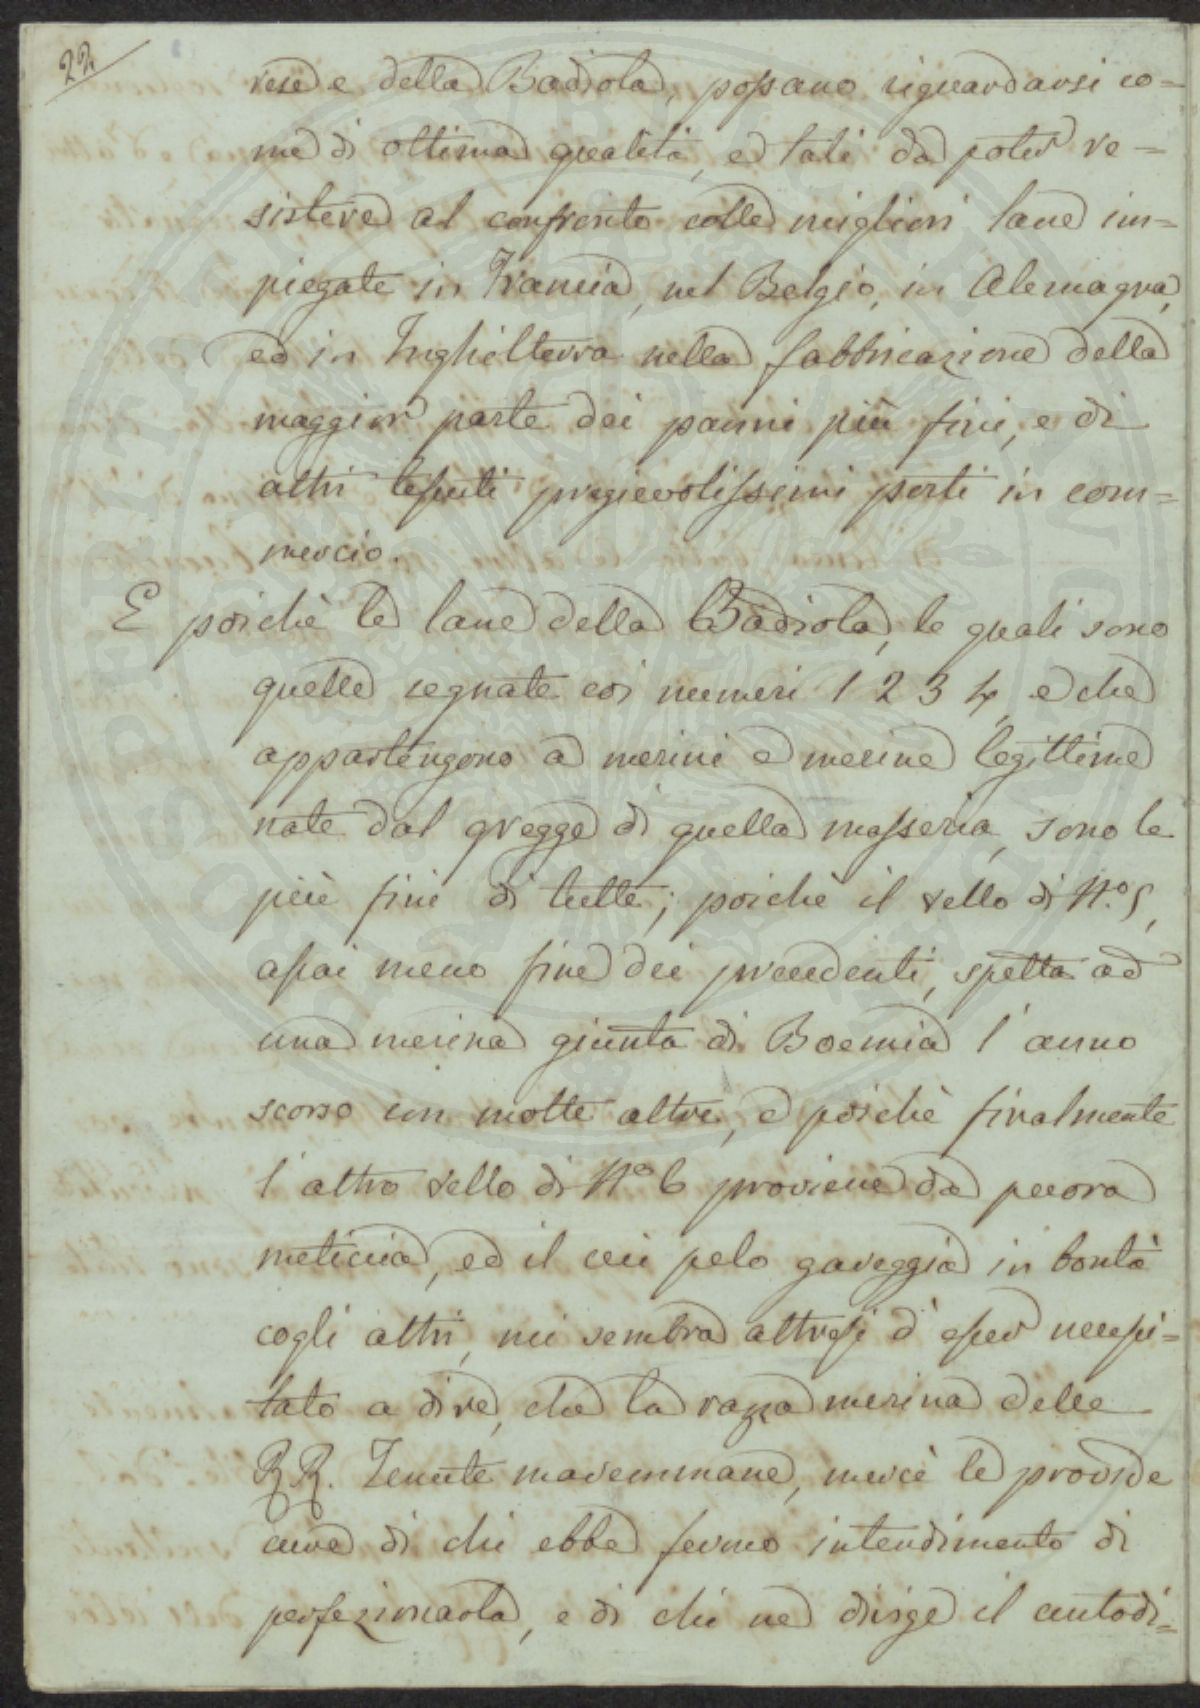 22
rese e della Badiola, possano riguardarsi co=
me di ottima qualità, e tali da poter re=
sistere al confronto colle migliori lane im=
piegate in Francia, nel Belgio, in Alemagna,
ed in Inghilterra nella fabbricazione della
maggior parte dei panni più fini, e di
altri tessuti pregievolissimi posti in com=
mercio.
E poichè le lane della Badiola, le quali sono
quelle segnate coi numeri 1 2 3 4, e che
appartengono a merini e merine legittime
nate dal gregge di quella masseria, sono le
più fini di tutte; poichè il vello di N.º 5,
assai meno fine dei precedenti, spetta ad
una merina giunta di Boemia l'anno
scorso con molte altre, e poichè finalmente
l'altro vello di Nº 6 proviene da pecora
meticcia, ed il cui pelo gareggia in bontà
cogli altri, mi sembra altresì d'esser necessi=
tato a dire, che la razza merina delle
RR. Tenute maremmane, mercè le provide
cure di chi ebbe fermo intendimento di
perfezionarla, e di chi ne dirige il custodi=